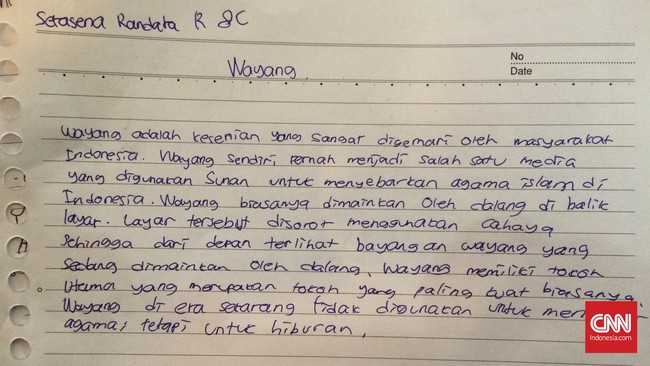 Setasena Randata R 8C
No
Date
Wayang
Wayang adalah kesenian yang sangat digemari oleh masyarakat
Indonesia. Wayang sendiri, pernah menjadi salah satu media
yang digunakan Sunan untuk menyebarkan agama islam di
Indonesia. Wayang biasanya dimainkan oleh dalang di balik
layar. Layar tersebut disorot menggunakan cahaya
sehingga dari depan terlihat bayangan wayang yang
sedang dimainkan oleh dalang. Wayang memiliki tokoh
utama yang merupakan tokoh yang paling kuat biasanya.
Wayang di era sekarang tidak digunakan untuk
agama, tetapi untuk hiburan.
CNN
Indonesia.com